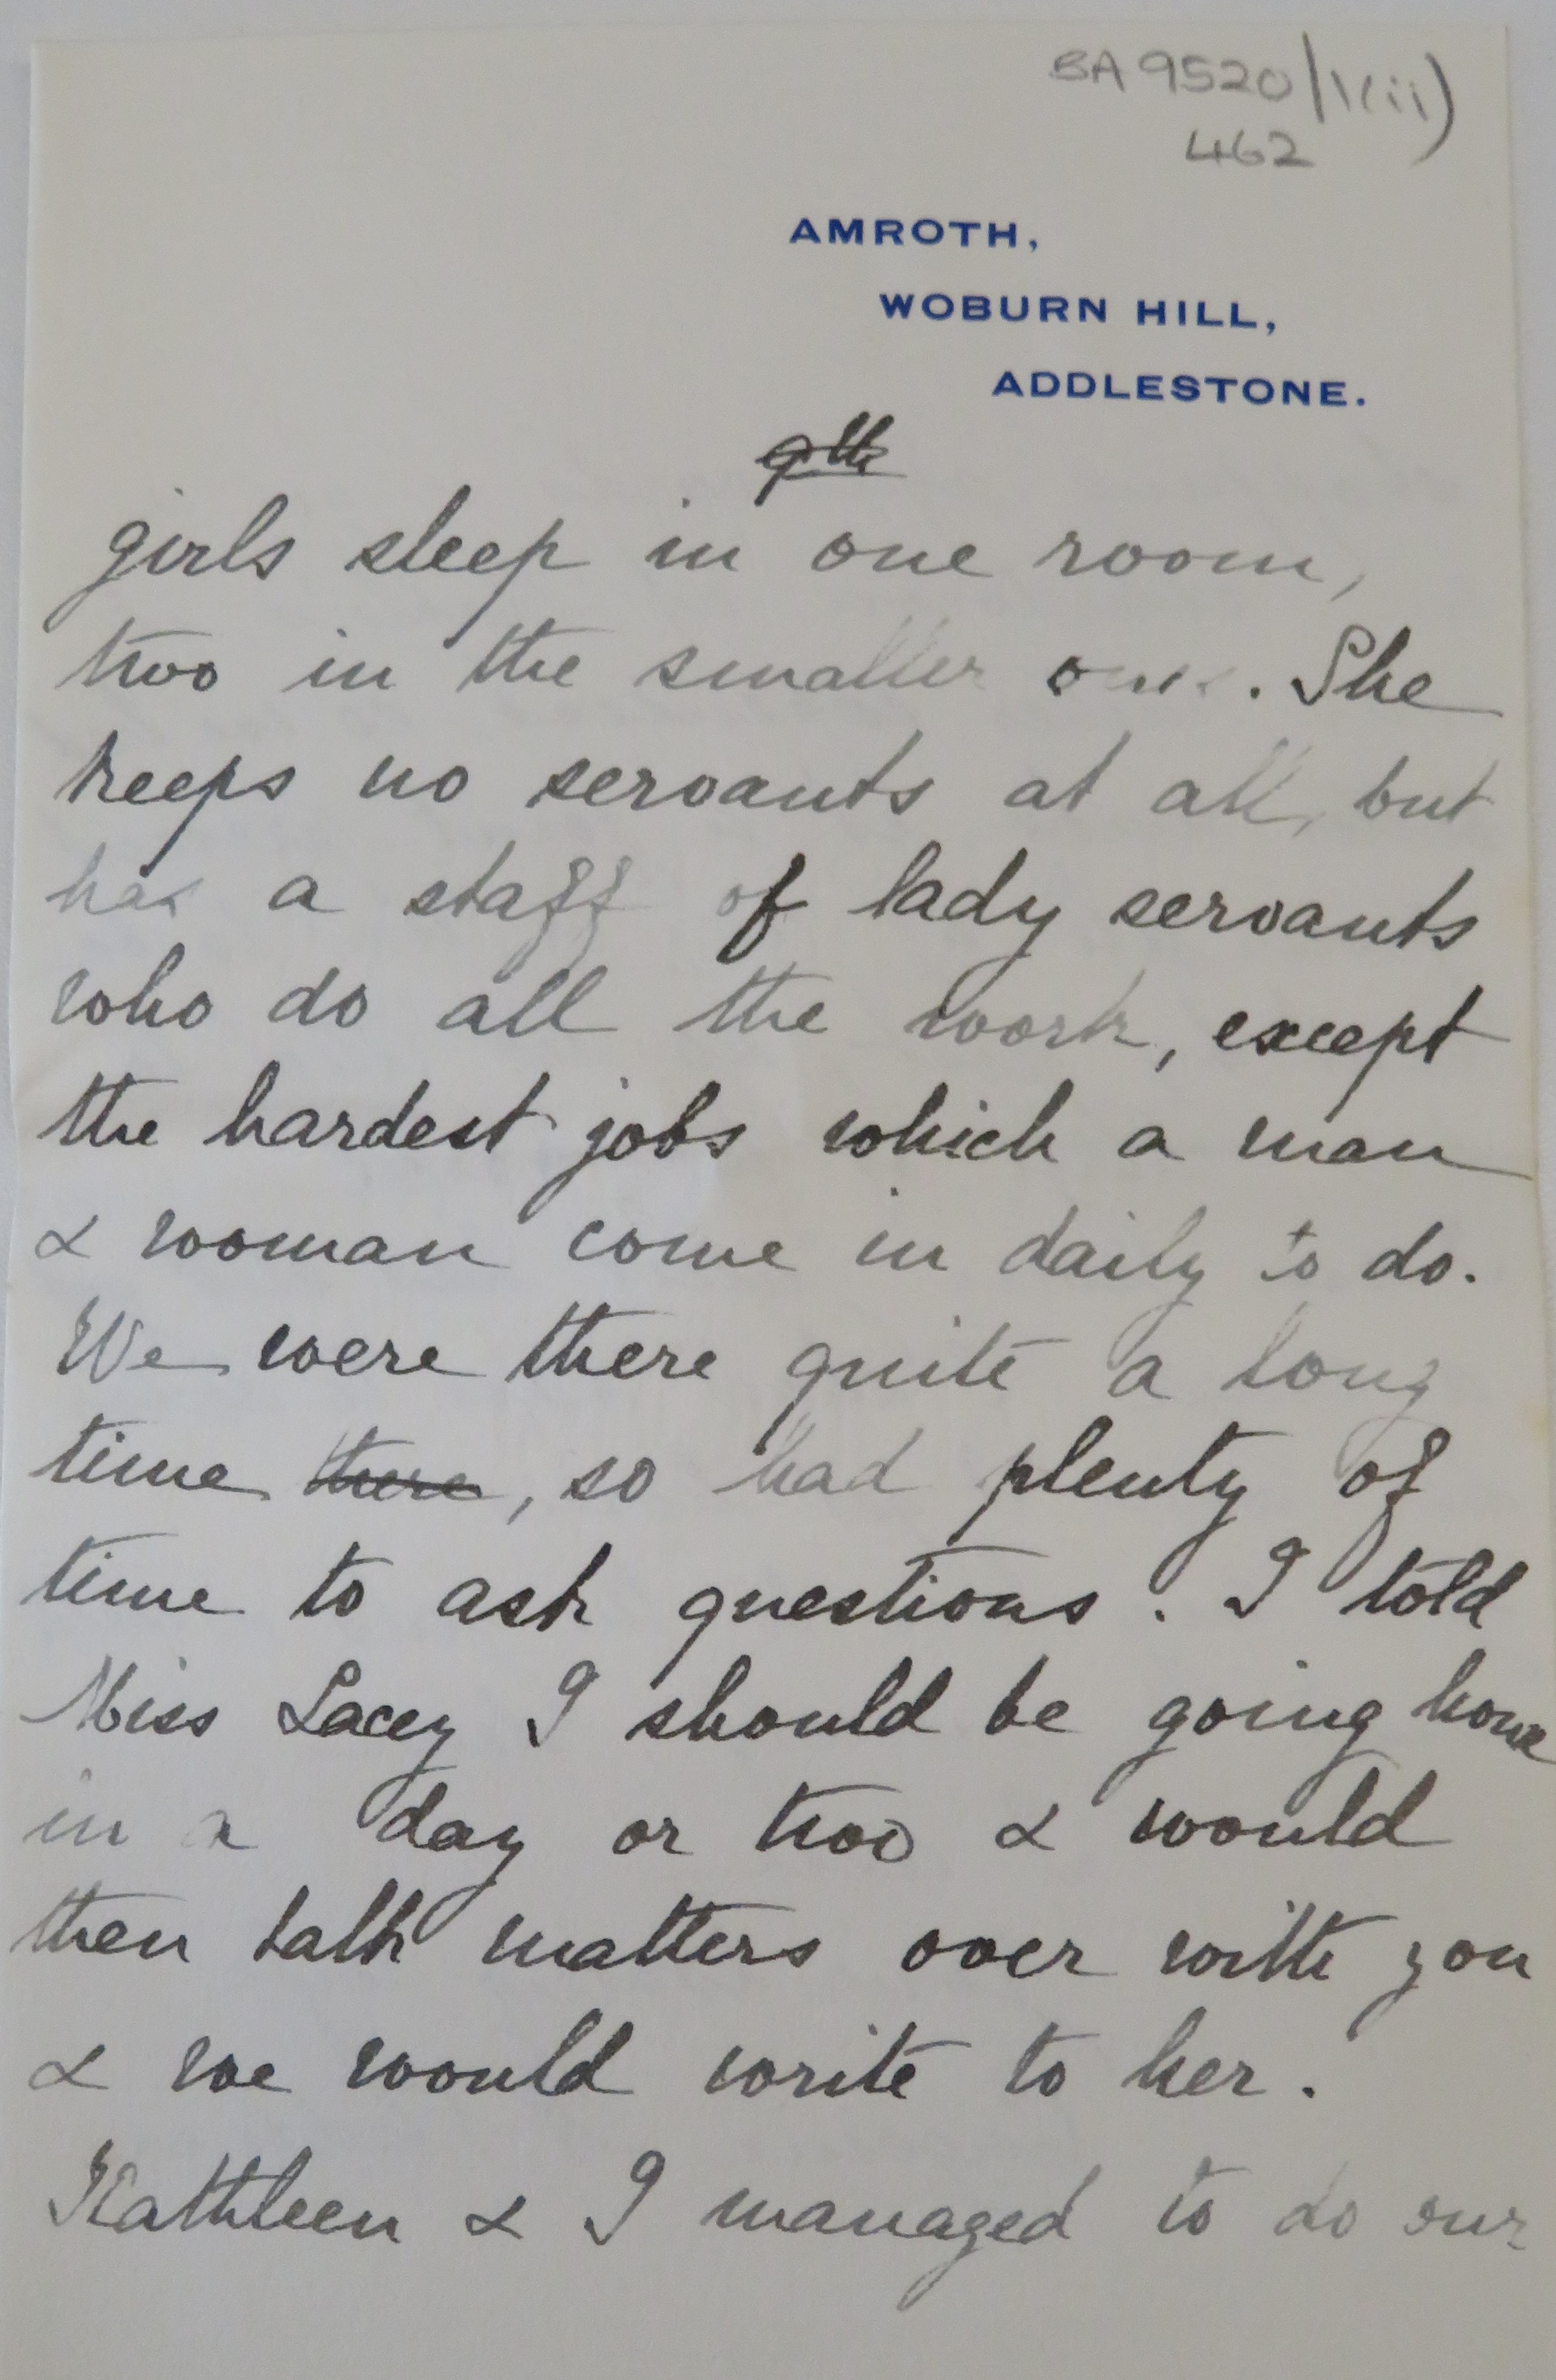 BA 9520/1(ii)
462
AMROTH,
WOBURN HILL,
ADDLESTONE.
9th
girls sleep in one room,
two in the smaller ones. She
keeps no servants at all, but
has a staff of lady servants
who do all the work, except
the hardest jobs which a man
& woman come in daily to do.
We were there quite a long
time there, so had plenty of
time to ask questions. I told
Miss Lacey I should be going home
in a day or two & would
then talk matters over with you
& we would write to her.
Kathleen & I managed to do our